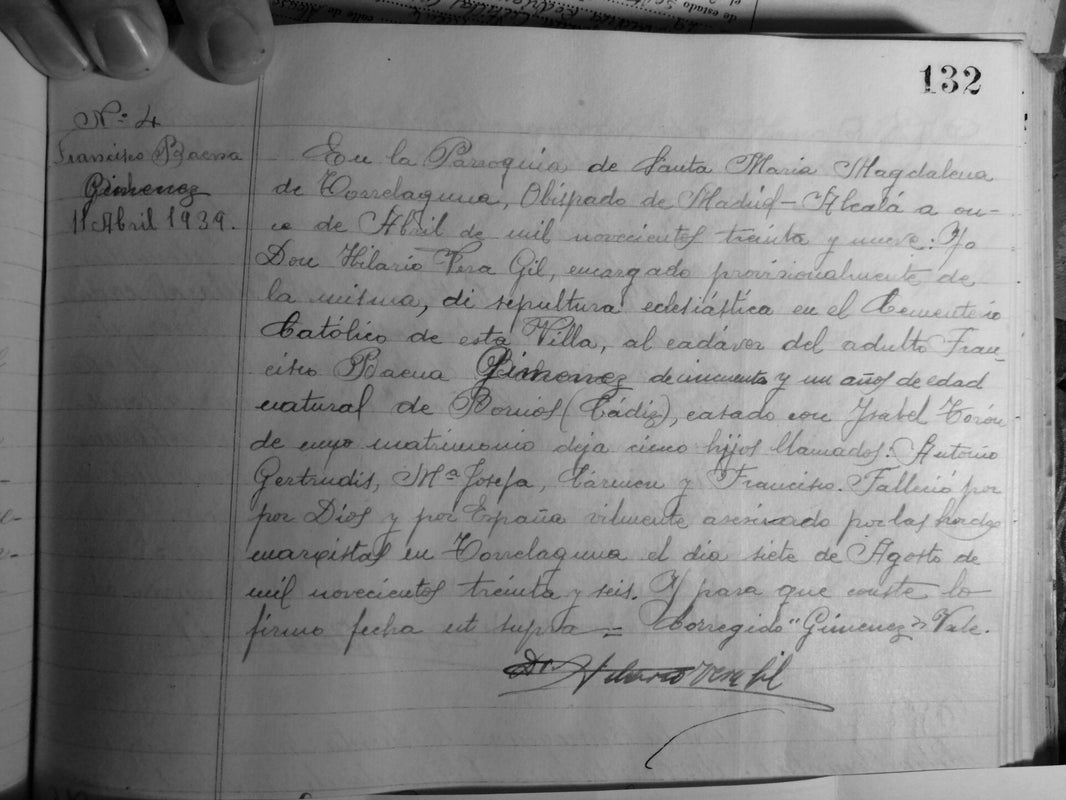 132
Nº 4
Francisco Baena
Gimenez
11 Abril 1939.
En la Parroquia de Santa Maria Magdalena
de Torrelaguna, Obispado de Madrid-Alcalá a on-
ce de Abril de mil novecientos treinta y nueve: Yo
Don Hilario Vera Gil, encargado provisionalmente de
la misma, di sepultura eclesiástica en el Cementerio
Católico de esta Villa, al cadáver del adulto Fran-
cisco Baena Gimenez de cincuenta y un años de edad
natural de Bornos (Cádiz), casado con Ysabel
de cuyo matrimonio deja cinco hijos llamados: Antonio
Gertrudis, Mª Josefa, Cármen y Francisco. Falleció por
por Dios y por España vilmente asesinado por las hordas
marxistas en Torrelaguna el dia siete de Agosto de
mil novecientos treinta y seis. Y para que conste lo
firmo fecha ut supra = Corregido "Gimenez" Vale.
Hilario Vera Gil